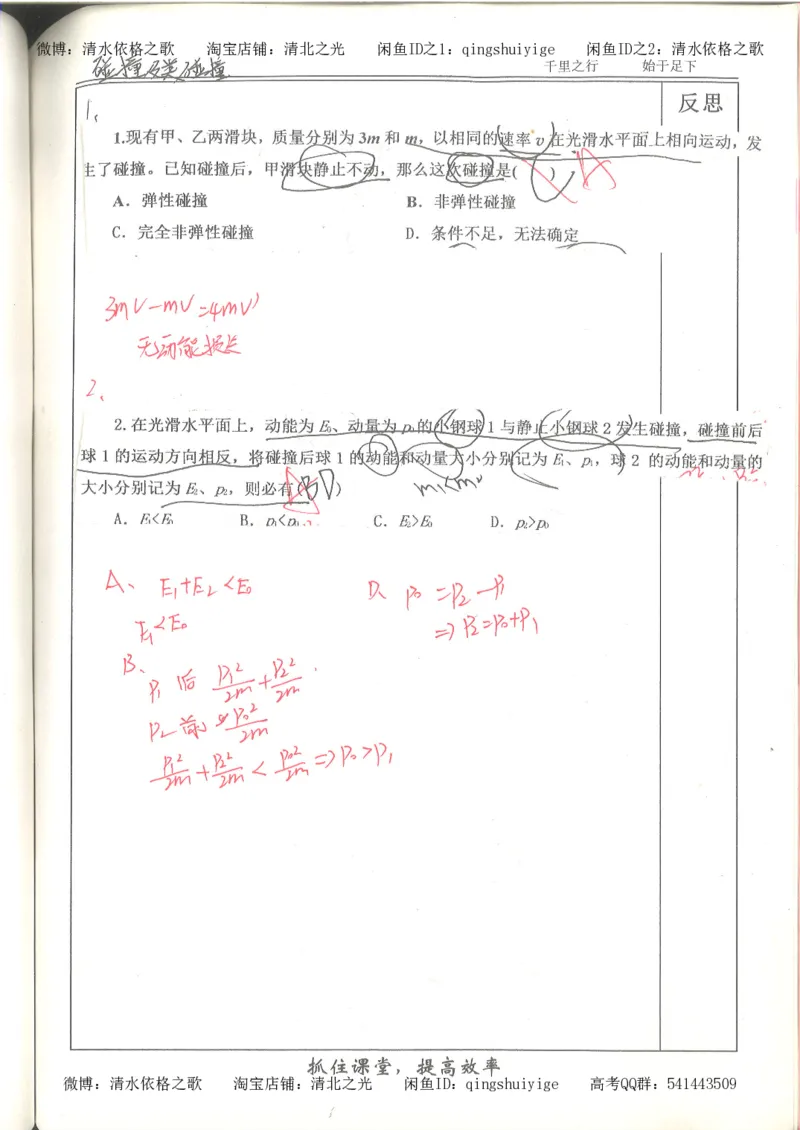 微博：清水依格之歌 淘宝店铺：清北之光 闲鱼ID之1：qingshuiyige 闲鱼ID之2：清水依格之歌
碰撞及类碰撞
千里之行 始于足下
反思
1、
1.现有甲、乙两滑块，质量分别为3m和m，以相同的速率v在光滑水平面上相向运动，发
生了碰撞。已知碰撞后，甲滑块静止不动，那么这次碰撞是( ) A
A．弹性碰撞 B．非弹性碰撞
C．完全非弹性碰撞 D．条件不足，无法确定
3mV－mV=4mV'
无动能损失
2、
2.在光滑水平面上，动能为E₀、动量为p₀的小钢球1与静止小钢球2发生碰撞，碰撞前后
球1的运动方向相反，将碰撞后球1的动能和动量大小分别记为E₁、p₁，球2 的动能和动量的
大小分别记为E₂、p₂，则必有(BD) m₁<m₂
A．E₁<E₀ B．p₁<p₀ C．E₂>E₀ D．p₂>p₀
A、 E₁+E₂<E₀
E₁<E₀
D、 p₀=p₂－p₁
=> p₂=p₀+p₁
B、
p₁后 p₁²/2m + p₂²/2m
p₂前 p₀²/2m
p₁²/2m + p₂²/2m < p₀²/2m => p₀>p₁
抓住课堂，提高效率
微博：清水依格之歌 淘宝店铺：清北之光 闲鱼ID：qingshuiyige 高考QQ群：541443509